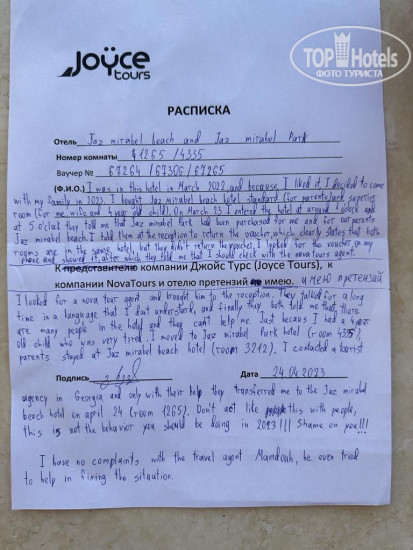 Joÿce
tours
TOPHotels
ФОТО ТУРИСТА
РАСПИСКА
Отель Jaz mirabel beach and Jaz mirabel Park
Номер комнаты 1265 / 4335
Ваучер № 67264 / 67306 / 67265
(Ф.И.О.) I was in this hotel in March 2022, and because I liked it, I decided to come
with my family in 2023. I bought Jaz mirabel beach hotel standard (for parents) and superior
room (for me, wife and 4 year old child). On March 23 I entered the hotel at around o'clock and
at 5 o'clock they told me that Jaz mirabel Park had been purchased for me and for our parents
Jaz mirabel beach. I told them at the reception to return the voucher, which clearly states that both
rooms are in the same hotel, but they didn't return the voucher, I looked for the voucher on my
phone and showed it, after which they told me that I should check with the nova tours agent.
К представителю компании Джойс Турс (Joyce Tours), к
компании NovaTours и отелю претензий не имею. имею претензий
I looked for a nova tour agent and brought him to the reception. They talked for a long
time in a language that I don't understand, and finally they both told me that there
are many people in the hotel and they can't help me. Just because I had a 4 year
old child who was very tired, I moved to Jaz mirabel Park hotel (room 4335),
parents stayed at Jaz mirabel beach hotel (room 3212). I contacted a tourist
Подпись Дата 24.04.2023
agency in Georgia and only with their help they transferred me to the Jaz mirabel
beach hotel on april 24 (room 1265). Don't act like this with people,
this is not the behavior you should be doing in 2023!!! Shame on you!!!
I have no complaints with the travel agent Mamdouh, he even tried
to help in fixing the situation.